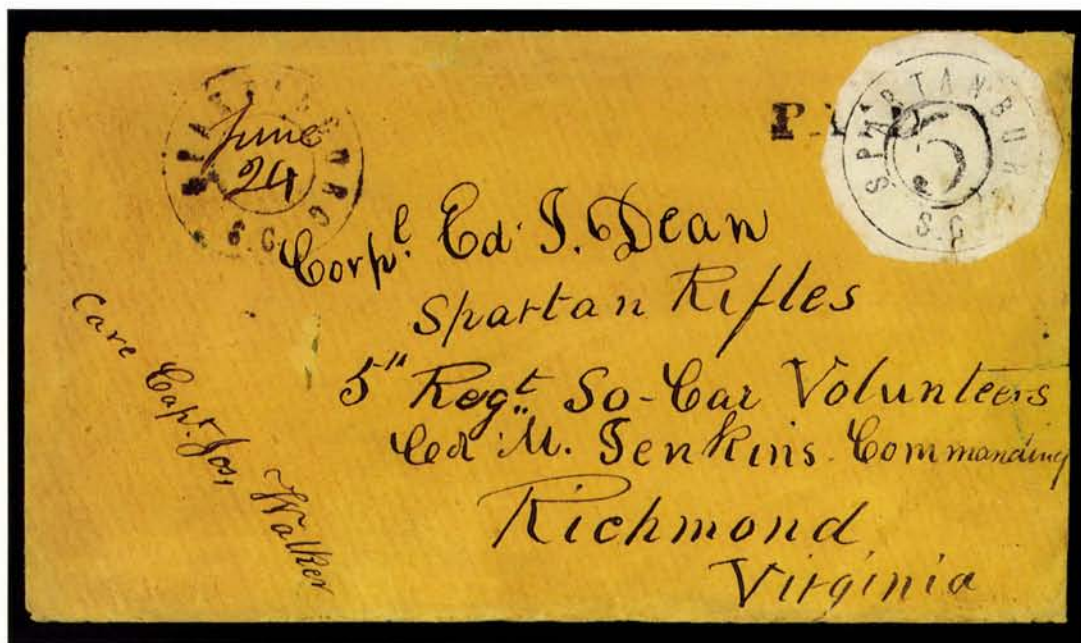 SPARTANBURG
S.C.
June
24
SPARTANBURG
S.C
5
Corpl. Ed. J. Dean
Spartan Rifles
5" Regt. So-Car Volunteers
Col M. Jenkins Commanding
Richmond
Virginia
Care Capt. Jos. Walker